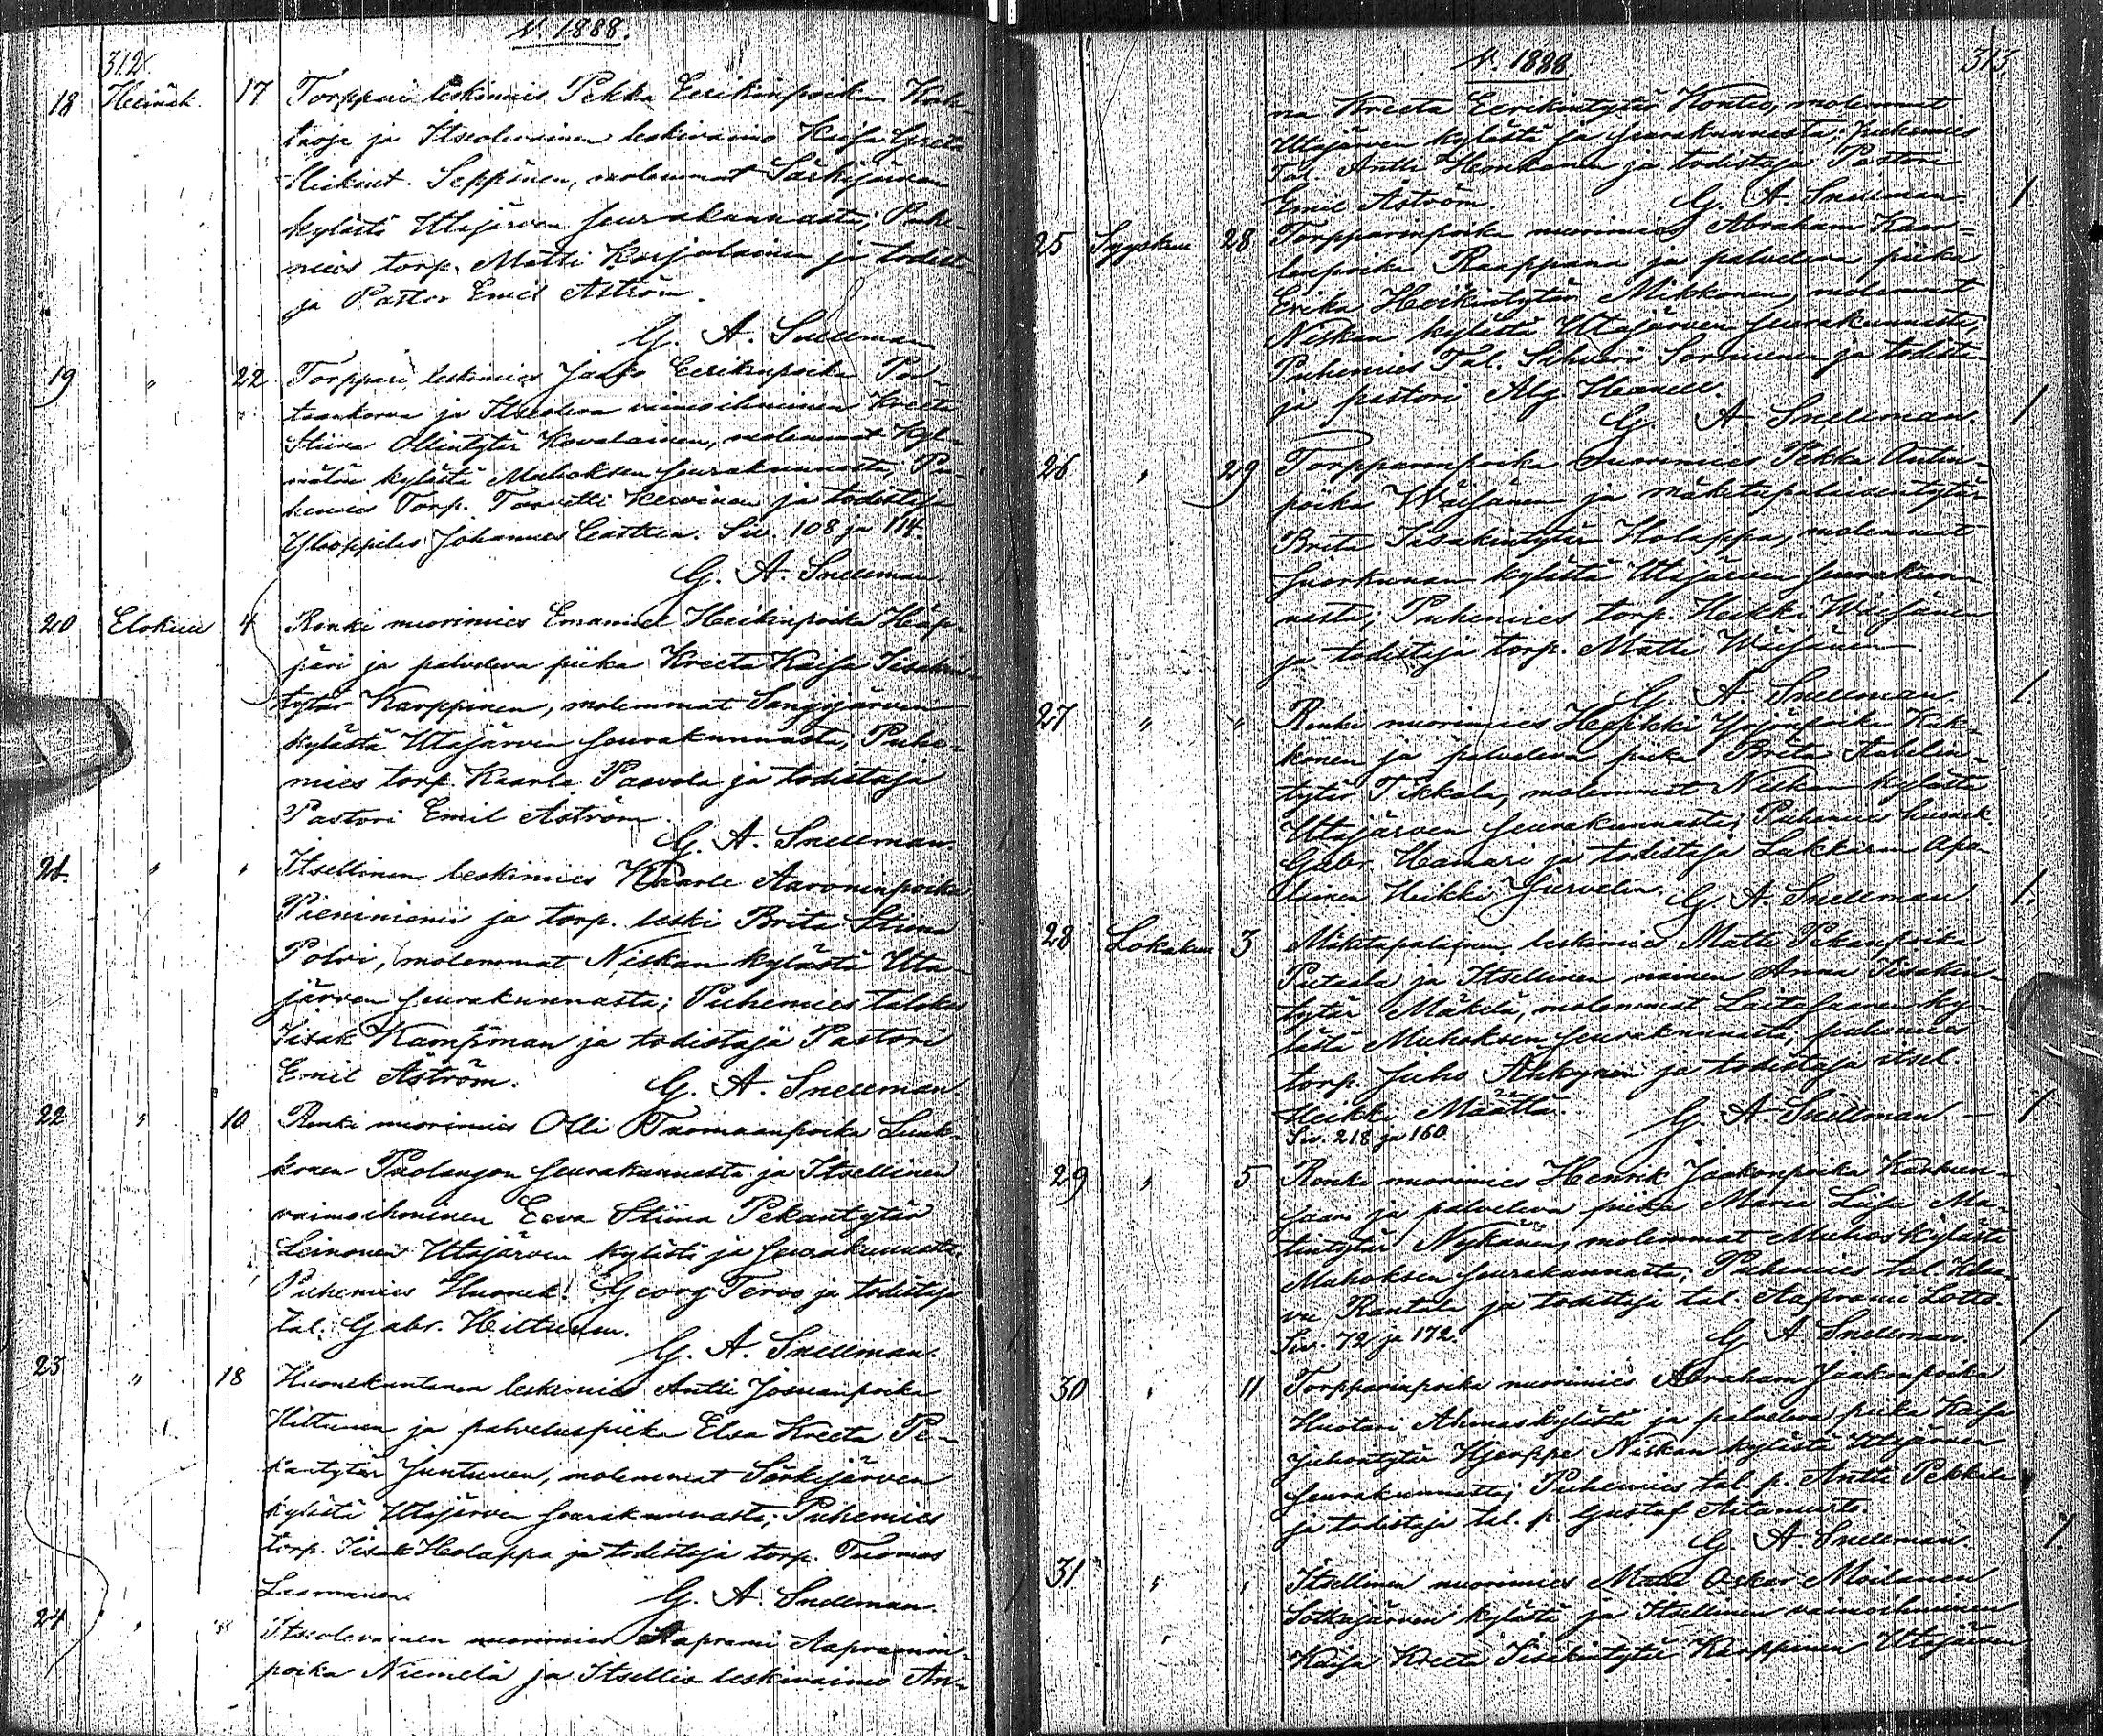 V. 1888.
312.
18 Heinäk. 17 Torppari leskimies Pekka Eerikinpoika
ja Itseolevainen leskivaimo Kaisa Greta
Heikint. Seppänen, molemmat Särkijärven
kylästä Utajärven seurakunnasta; Puhe-
mies torp. Matti Karjalainen ja todista-
ja Pastor Emil Åström.
G. A. Snellman
19 " 22 Torppari leskimies Jaako Eerikinpoika
ja Itseoleva vaimoihminen Kreeta
Stiina Ollintytär Kovalainen, molemmat Kyl-
kylästä Muhoksen seurakunnasta; Pu-
hemies Torp. Taavetti Kervinen ja todistaja
Ylioppilas Johannes Castren. Siv. 108 ja 114.
G. A. Snellman
20 Elokuu 4 Renki nuorimies Emanuel Heikinpoika Hää-
ja palveleva piika Kreeta Kaisa Iisakin-
tytär Karppinen, molemmat Sangijärven
kylästä Utajärven seurakunnasta, Puhe-
mies torp. Kaarle Paavola ja todistaja
Pastori Emil Åström.
G. A. Snellman.
21. " " Itsellinen leskimies Kaarle Aaronenpoika
Pieniniemi ja torp. leski Brita Stiina
Polvi, molemmat Niskan kylästä Uta-
järven seurakunnasta; Puhemies talokas
Iisak Kampman ja todistaja Pastori
Emil Åström. G. A. Snellman.
22 " 10 Renki nuorimies Olli Tuomaanpoika Luuk-
konen Puolangon seurakunnasta ja Itsellinen
vaimoihminen Eeva Stiina Pekantytär
Leinonen Utajärven kylästä ja seurakunnasta.
Puhemies Huonek. Georg Tervo ja todistaja
tal. Gabr. Hiltunen.
G. A. Snellman.
23 " 18 Huonekuntanen leskimies Antti Josuanpoika
Hiltunen ja palveluspiika Elsa Kreeta Pe-
kantytär Juntunen, molemmat Särkijärven
kylästä Utajärven seurakunnasta; Puhemies
torp. Iisak Holappa ja todistaja torp. Tuomas
G. A. Snellman.
24 " " Itseolevainen nuorimies Aaprami Aapramin-
poika Niemelä ja Itsellis leskivaimo An-
V. 1888. 313.
na Kreeta Eerikintytär Kontio, molemmat
Utajärven kylästä ja seurakunnasta; Puhemies
Tal. Antti Honkanen ja todistaja Pastori
Emil Åström. G. A. Snellman. 1.
25 Syyskuu 28 Torpparinpoika nuorimies Abraham Kaar-
lenpoika Raappana ja palveleva piika
Erika Heikintytär Mikkonen, molemmat
Niskan kylästä Utajärven seurakunnasta,
Puhemies Tal. Sormunen ja todista-
ja pastori Alg. Hanell.
G. A. Snellman. 1
26 " 29 Torpparinpoika nuorimies Pekka Antin-
poika Wäisänen ja mäkitupalaisentytär
Brita Iisakintytär Holappa, molemmat
Juorkunan kylästä Utajärven seurakun-
nasta; Puhemies torp. Heikki Wäisänen
ja todistaja torp. Matti Wäisänen.
G. A. Snellman 1.
27 " " Renki nuorimies Heikki Yrjönpoika Kuk-
konen ja palveleva piika Brita
tytär Tikkala, molemmat Niskan kylästä
Utajärven seurakunnasta; Puhemies huonek.
Gabr. Hamari ja todistaja Lukkarin Apu-
lainen Heikki Jurvelin. G. A. Snellman 1.
28 Lokakuu 3 Mäkitupalainen leskimies Matti Pekanpoika
Putaala ja Itsellinen nainen Anna Iisakin-
tytär Mäkelä, molemmat Laitasaaren ky-
lästä Muhoksen seurakunnasta, puhemies
torp. Juho Ahkynen ja todistaja itsel.
Heikki Määttä. G. A. Snellman – 1
Siv. 218 ja 160.
29 " 5 Renki nuorimies Henrik Jaakonpoika Karhun-
saari ja palveleva piika Maria Liisa Ma-
tintytär Nykänen, molemmat Muhos kylästä
Muhoksen seurakunnasta; Puhemies tal.
Rantala ja todistaja tal. Aaprami Lotto.
Siv. 72 ja 172. G. A. Snellman. 1
30 " 11 Torpparinpoika nuorimies Abraham Jaakonpoika
Huotari Ahmaskylästä ja palveleva piika Kaisa
Juhontytär Hjerppe Niskan kylästä Utajärven
seurakunnasta; Puhemies tal. p. Antti Pekkala
ja todistaja tal. p. Gustaf Aitamurto.
G. A. Snellman. 1.
31 " " Itsellinen nuorimies Matti Oskar Moilanen
Sotkajärven kylästä ja Itsellinen vaimoihminen
Kaisa Kreeta Iisakintytär Karppinen Utajärven